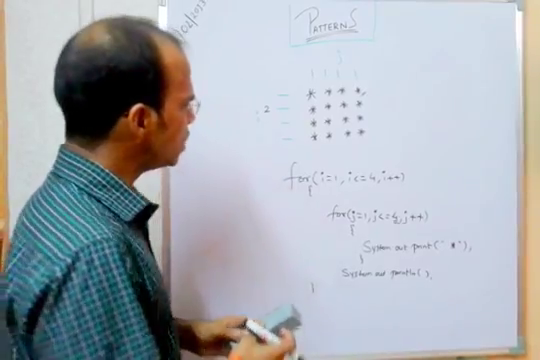 02/2023
PATTERNS
j
1 1 1 1
* * * *
i 2 * * * *
* * * *
* * * *
for(i=1, i<=4, i++)
{
for(j=1, j<=4, j++)
{
System out print(" *"),
}
System out println(),
}